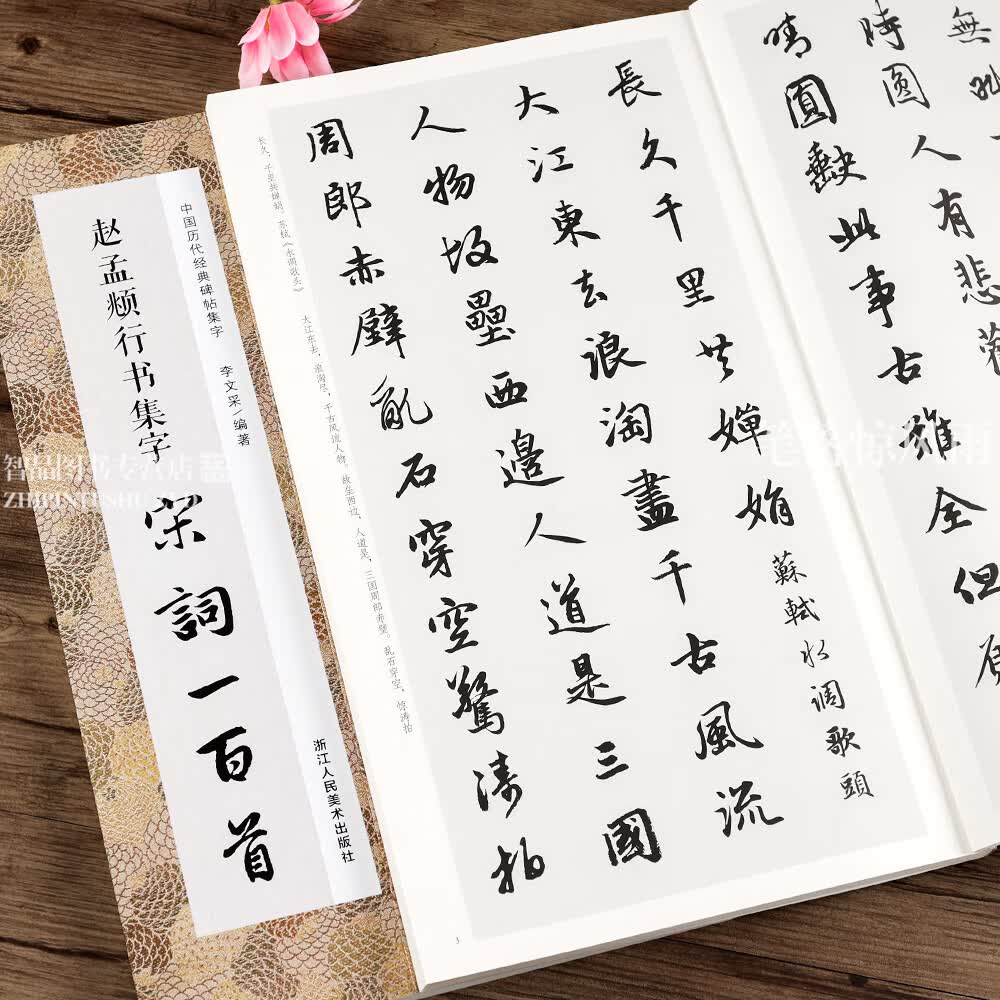 中国历代经典碑帖集字
李文采/编著
赵孟頫行书集字
宋詞一百首
浙江人民美术出版社
無
時圓人有悲
晴圓缺此事古難全但
長久千里共嬋娟
蘇軾水调歌頭
大江東去浪淘盡千古風流
人物故壘西邊人道是三國
周郎赤壁亂石穿空驚濤拍
长久，千里共婵娟。苏轼《水调歌头》
大江东去，浪淘尽，千古风流人物。故垒西边，人道是，三国周郎赤壁。乱石穿空，惊涛拍
3
智品图书专营店